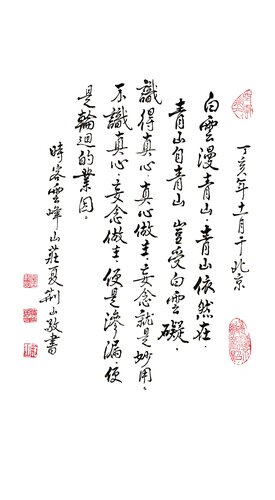 丁亥年十一月于北京
白雲漫青山，青山依然在，
青山自青山，豈受白雲礙，
識得真心，真心做主，妄念就是妙用。
不識真心，妄念做主，便是滲漏，便
是輪迴的業因。
時客雲峰山莊夏荆山敬書